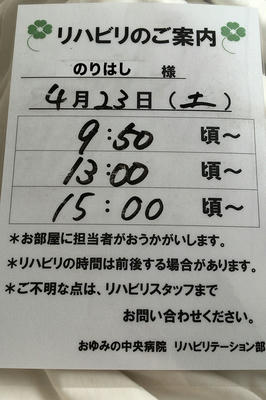 リハビリのご案内
のりはし 様
4月23日(土)
9:50 頃~
13:00 頃~
15:00 頃~
*お部屋に担当者がおうかがいします。
*リハビリの時間は前後する場合があります。
*ご不明な点は、リハビリスタッフまで
お問い合わせください。
おゆみの中央病院 リハビリテーション部